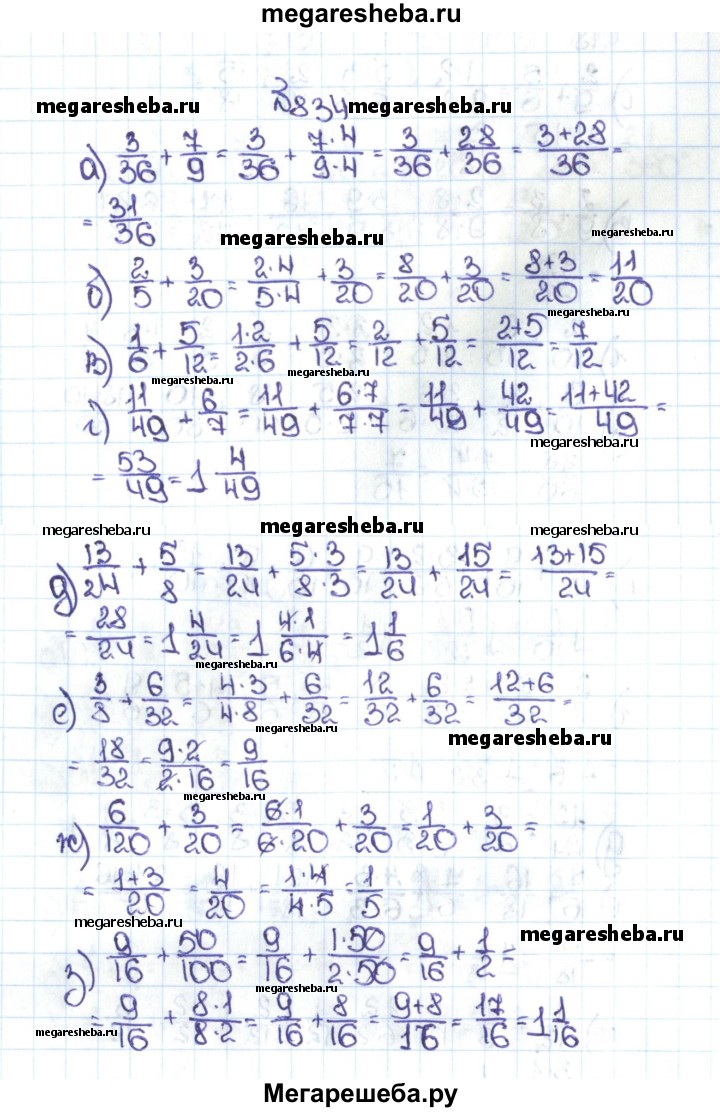 megaresheba.ru
megaresheba.ru №834 megaresheba.ru
а) 3/36 + 7/9 = 3/36 + 7·4/9·4 = 3/36 + 28/36 = 3+28/36 =
= 31/36
megaresheba.ru megaresheba.ru
б) 2/5 + 3/20 = 2·4/5·4 + 3/20 = 8/20 + 3/20 = 8+3/20 = 11/20
megaresheba.ru
в) 1/6 + 5/12 = 1·2/2·6 + 5/12 = 2/12 + 5/12 = 2+5/12 = 7/12
megaresheba.ru megaresheba.ru
г) 11/49 + 6/7 = 11/49 + 6·7/7·7 = 11/49 + 42/49 = 11+42/49 =
megaresheba.ru
= 53/49 = 1 4/49
megaresheba.ru megaresheba.ru megaresheba.ru
д) 13/24 + 5/8 = 13/24 + 5·3/8·3 = 13/24 + 15/24 = 13+15/24 =
= 28/24 = 1 4/24 = 1 4·1/6·4 = 1 1/6
megaresheba.ru
е) 3/8 + 6/32 = 4·3/4·8 + 6/32 = 12/32 + 6/32 = 12+6/32 =
megaresheba.ru megaresheba.ru
= 18/32 = 9·2/2·16 = 9/16
megaresheba.ru
ж) 6/120 + 3/20 = 6·1/6·20 + 3/20 = 1/20 + 3/20 =
= 1+3/20 = 4/20 = 1·4/4·5 = 1/5
megaresheba.ru megaresheba.ru
з) 9/16 + 50/100 = 9/16 + 1·50/2·50 = 9/16 + 1/2 =
= 9/16 + 8·1/8·2 = 9/16 + 8/16 = 9+8/16 = 17/16 = 1 1/16
megaresheba.ru megaresheba.ru
Мегарешеба.ру